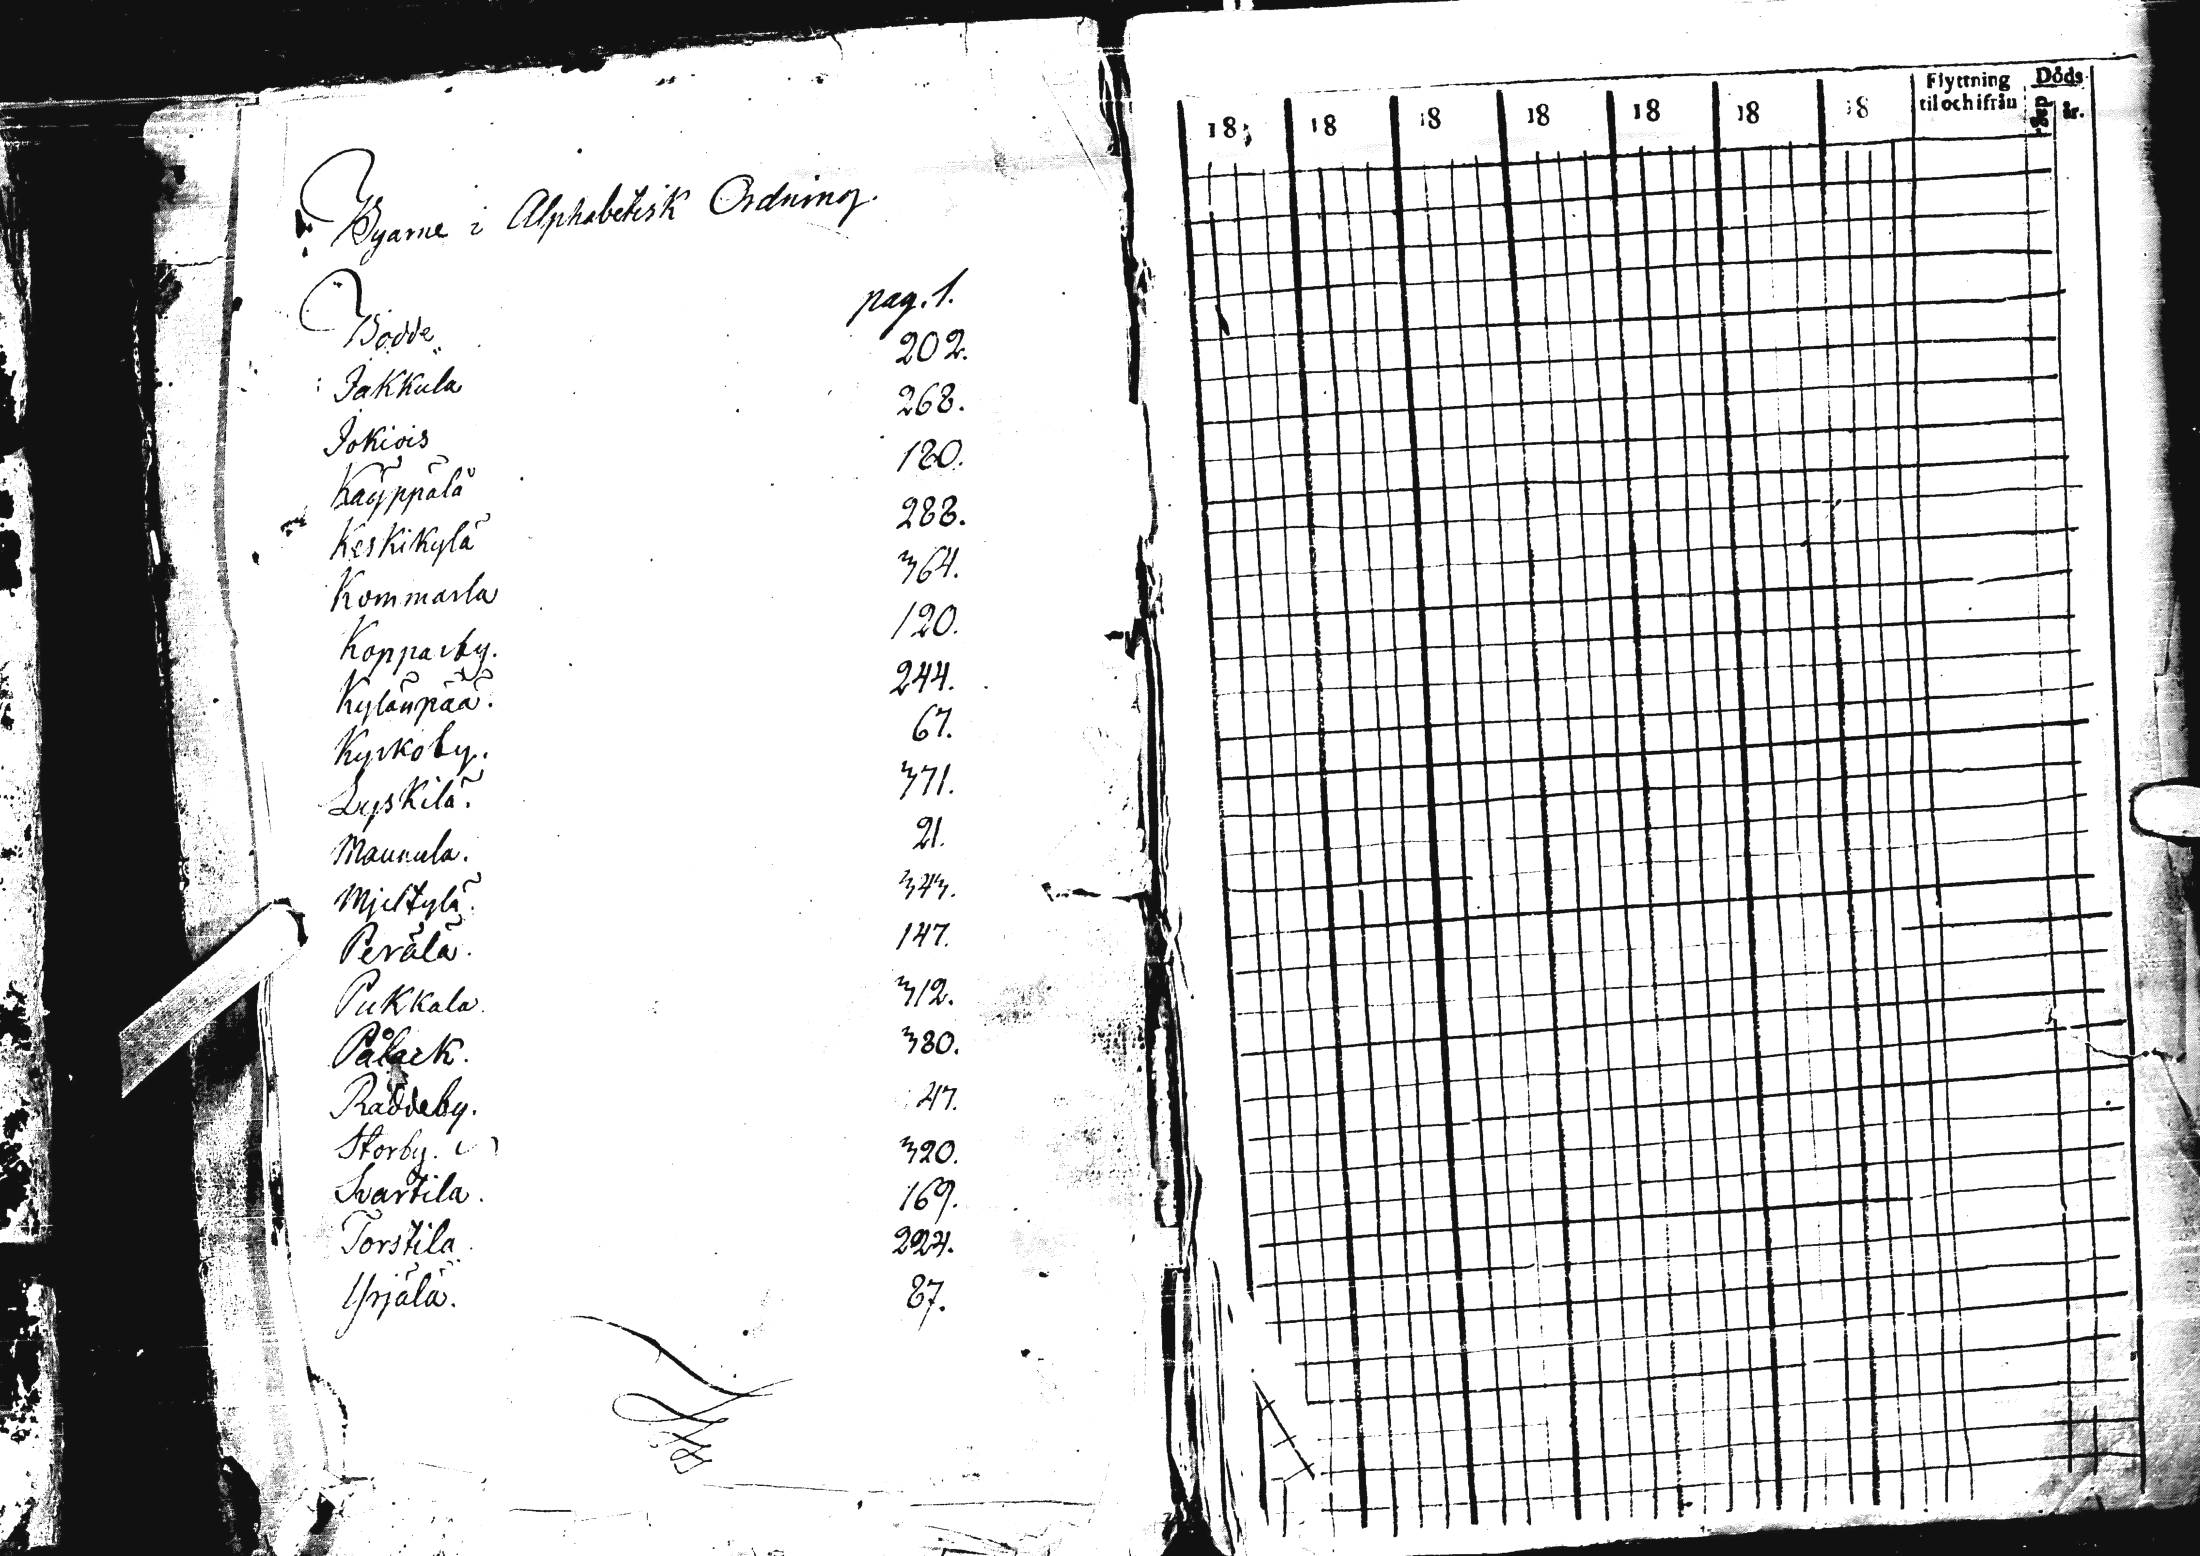 Byarne i Alphabetisk Ordning.
Bodde pag. 1.
Jakkula 202.
Jokiois 268.
Käyppälä 180.
Keskikylä 288.
Kommarla 364.
Kopparby. 120.
Kylänpää. 244.
Kyrkoby. 67.
Lyskilä. 371.
Maunula. 21.
Mjeltylä. 343.
Perälä. 147.
Pukkala. 312.
Pålack. 380.
Räddeby. 47.
Storby. 320.
Svartila. 169.
Torstila 224.
Yrjälä. 87.
18 18 18 18 18 18 18 Flyttning til och ifrån Döds
dag år.